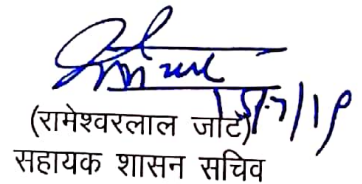 15/7/19
(रामेश्वरलाल जाट)
सहायक शासन सचिव